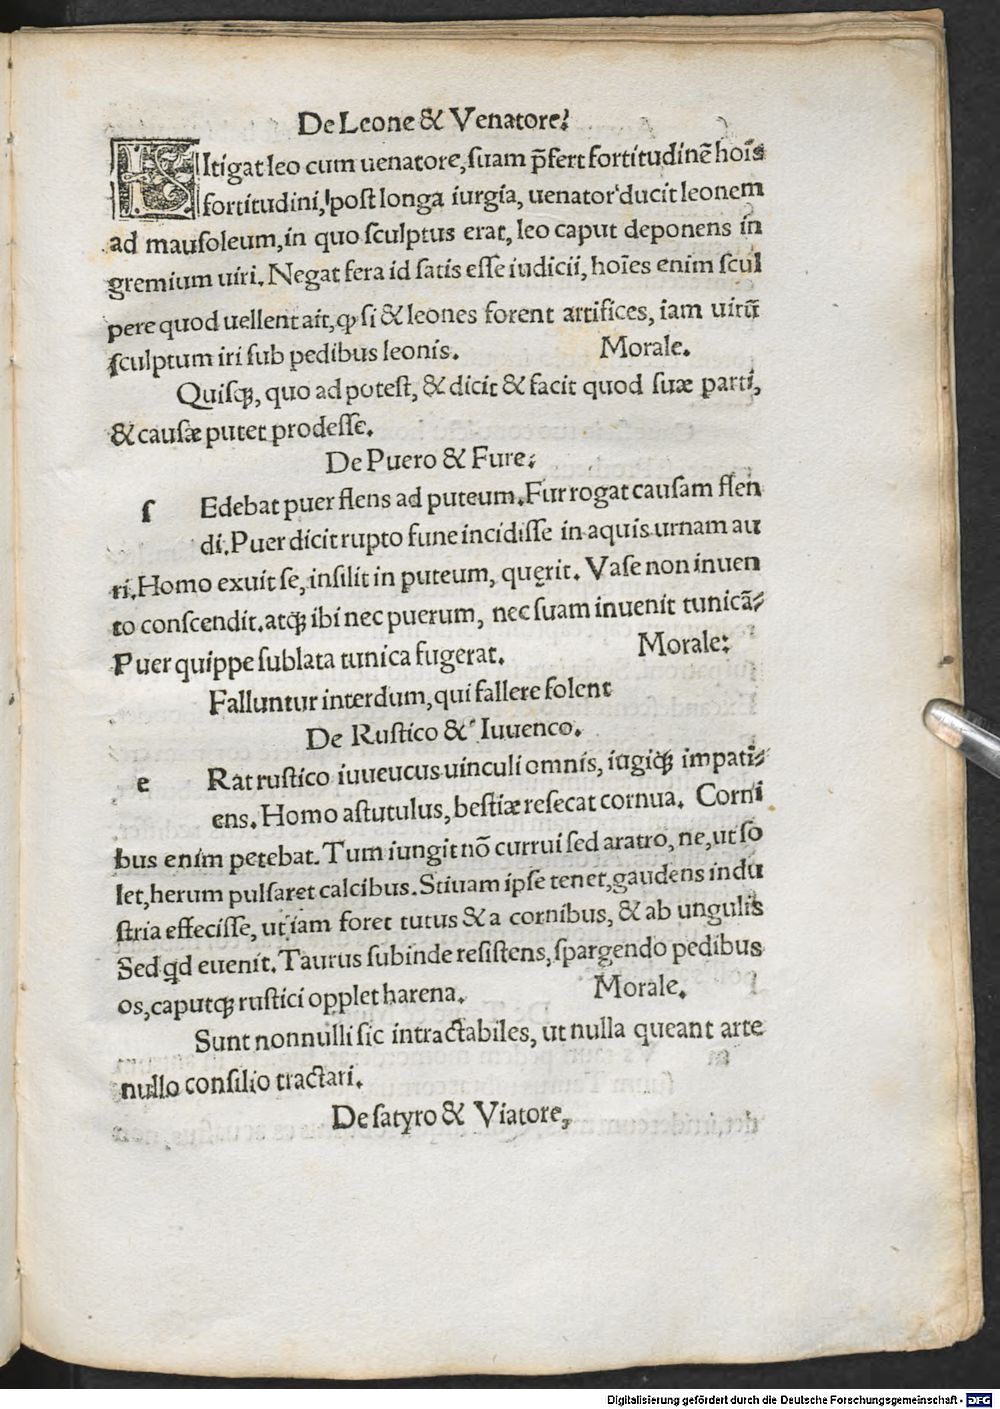 De Leone & Venatore.
LItigat leo cum uenatore, suam p̄fert fortitudinē hoīs
fortitudini, post longa iurgia, uenator ducit leonem
ad mausoleum, in quo sculptus erat, leo caput deponens in
gremium uiri. Negat fera id satis esse iudicii, hoīes enim scul
pere quod uellent ait, ꝙ si & leones forent artifices, iam uirū
sculptum iri sub pedibus leonis. Morale.
Quisqꝫ, quo ad potest, & dicit & facit quod suæ parti,
& causæ putet prodesse.
De Puero & Fure:
s Edebat puer flens ad puteum. Fur rogat causam flen
di. Puer dicit rupto fune incidisse in aquis urnam au
ri. Homo exuit se, insilit in puteum, quęrit. Vase non inuen
to conscendit. atqꝫ ibi nec puerum, nec suam inuenit tunicā⸗
Puer quippe sublata tunica fugerat. Morale:
Falluntur interdum, qui fallere solent
De Rustico & Iuuenco.
e Rat rustico iuueucus uinculi omnis, iugiqꝫ impati⸗
ens. Homo astutulus, bestiæ resecat cornua. Corni
bus enim petebat. Tum iungit nō currui sed aratro, ne, ut so
let, herum pulsaret calcibus. Stiuam ipse tenet, gaudens indu
stria effecisse, ut iam foret tutus & a cornibus, & ab ungulis
Sed qd euenit. Taurus subinde resistens, spargendo pedibus
os, caputqꝫ rustici opplet harena. Morale.
Sunt nonnulli sic intractabiles, ut nulla queant arte
nullo consilio tractari.
De satyro & Viatore,
Digitalisierung gefördert durch die Deutsche Forschungsgemeinschaft - DFG